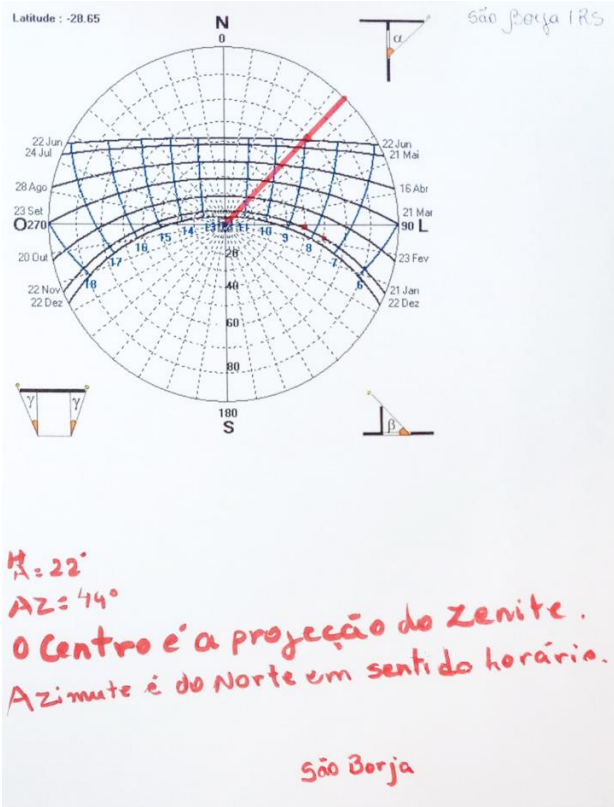 Latitude : -28.65
São Borja / RS
N
0
α
22 Jun
24 Jul
28 Ago
23 Set
O 270
20 Out
22 Nov
22 Dez
22 Jun
21 Mai
16 Abr
21 Mar
90 L
23 Fev
21 Jan
22 Dez
18 17 16 15 14 13 12 11 10 9 8 7 6
20
40
60
80
180
S
γ γ
β
H
A = 22°
AZ = 44°
O Centro é a projecção do Zenite.
Azimute é do Norte em sentido horário.
São Borja